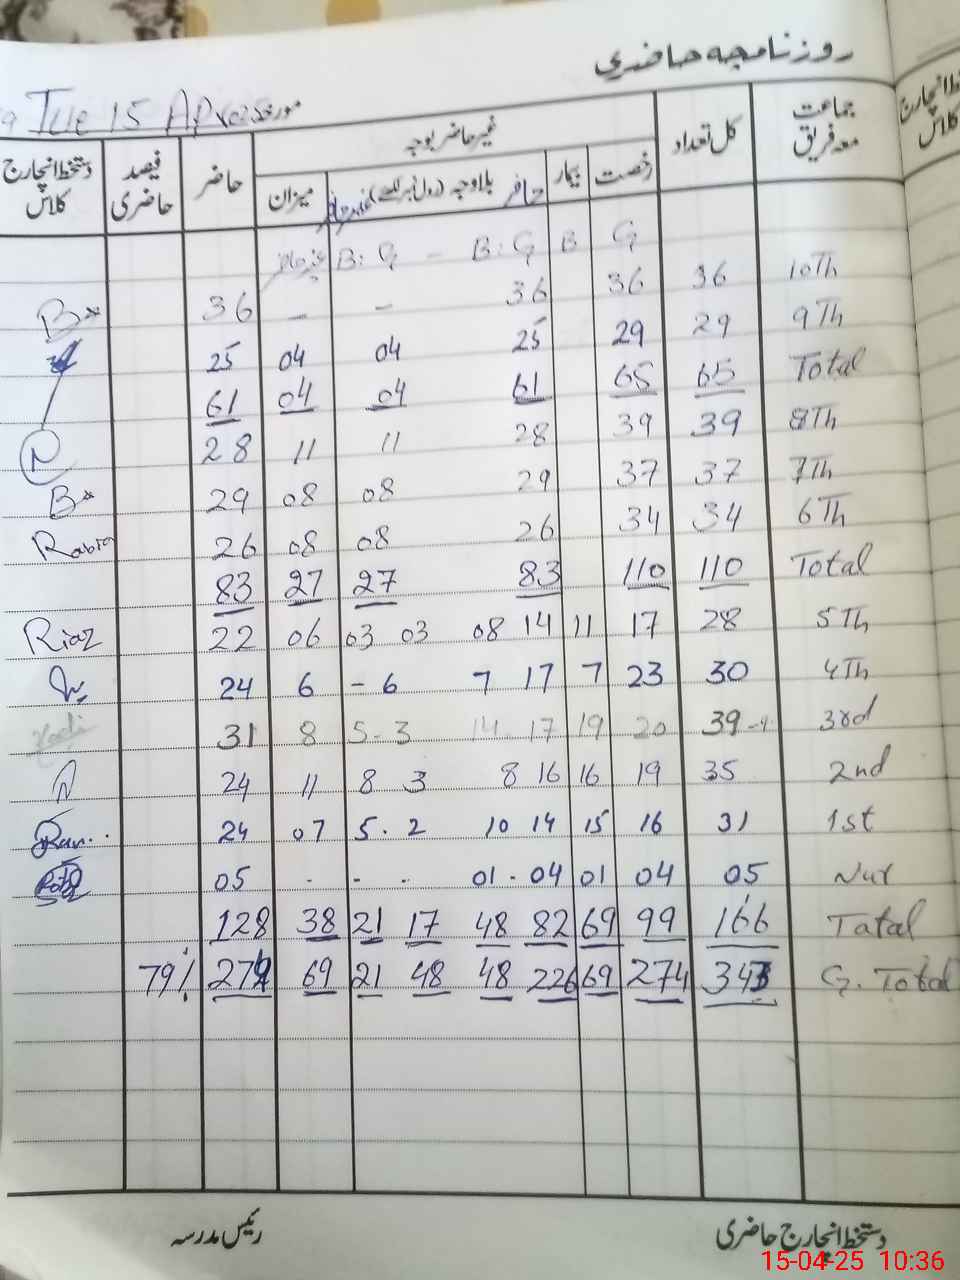 روزنامچہ حاضری
مورخہ Tue 15 Apr 025
جماعت معہ فریق کل تعداد غیر حاضر بوجہ حاضر فیصد حاضری دستخط انچارج کلاس
رخصت بیمار حاضر بلاوجہ (رول نمبر لکھیے) غیر حاضر میزان
G B B: G - B: G غیر حاضر
10Th 36 36 36 - - 36
9Th 29 29 25 04 04 25
Total 65 65 61 04 04 61
8Th 39 39 28 11 11 28
7Th 37 37 29 08 08 29
6Th 34 34 26 08 08 26 Rabia
Total 110 110 83 27 27 83
5Th 28 17 11 08 14 03 03 06 22 Riaz
4Th 30 23 7 7 17 - 6 6 24
3rd 39 20 19 14 - 17 5 - 3 8 31
2nd 35 19 16 8 16 8 3 11 24
1st 31 16 15 10 14 5 . 2 07 24
Nur 05 04 01 01 - 04 - . - 05
Tatal 166 99 69 48 82 21 17 38 128
G. Total 343 274 69 48 226 21 48 69 274 79%
دستخط انچارج حاضری رئیس مدرسہ
15-04-25 10:36